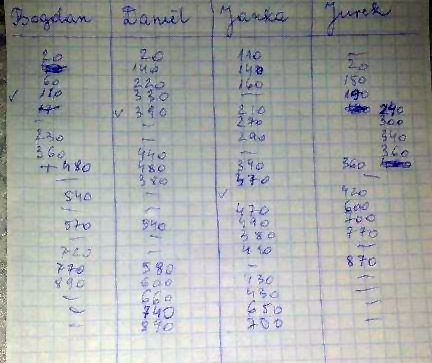 Bogdan Daniel Janka Jurek
20 20 110 —
140 140 20
60 220 160 180
110 330 — 190
390 210 240
— — 270 300
230 — 290 340
360 440 — 360
480 480 340 360
— 380 470 —
540 — 420
— — 470 600
570 540 490 700
— — 380 770
720 — 410 —
770 580 — 870
890 600 430 —
— 660 430 —
— 740 650 —
— 890 700 —